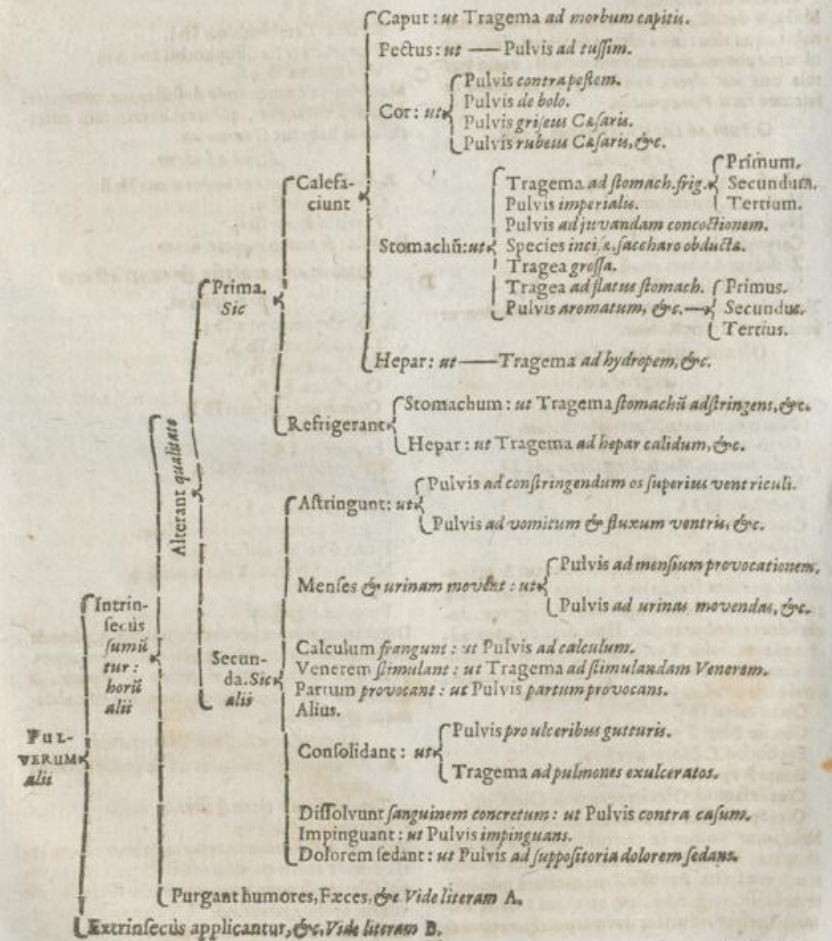 Caput: ut Tragema ad morbum capitis.
Pectus: ut — Pulvis ad tussim.
Cor: ut
Pulvis contra pestem.
Pulvis de bolo.
Pulvis griseus Cæsaris.
Pulvis rubeus Cæsaris, &c.
Stomachū: ut
Tragema ad stomach. frig.
Primum.
Secundum.
Tertium.
Pulvis imperialis.
Pulvis ad juvandam concoctionem.
Species incisa, saccharo obducta.
Tragea grossa.
Tragea ad flatus stomach.
Pulvis aromatum, &c. —
Primus.
Secundus.
Tertius.
Hepar: ut — Tragema ad hydropem, &c.
Calefa-
ciunt
Prima.
Sic
Refrigerant
Stomachum: ut Tragema stomachū adstringens, &c.
Hepar: ut Tragema ad hepar calidum, &c.
Alterant qualitate
Astringunt: ut
Pulvis ad constringendum os superius ventriculi.
Pulvis ad vomitum & fluxum ventris, &c.
Menses & urinam movēt: ut
Pulvis ad mensium provocationem.
Pulvis ad urinas movendas, &c.
Secun-
da. Sic
alii
Calculum frangunt: ut Pulvis ad calculum.
Venerem stimulant: ut Tragema ad stimulandam Venerem.
Partum provocant: ut Pulvis partum provocans.
Alius.
Consolidant: ut
Pulvis pro ulceribus gutturis.
Tragema ad pulmones exulceratos.
Dissolvunt sanguinem concretum: ut Pulvis contra casum.
Impinguant: ut Pulvis impinguans.
Dolorem sedant: ut Pulvis ad suppositoria dolorem sedans.
Intrin-
secùs
sumū
tur:
horū
alii
PUL-
VERUM
alii
Purgant humores, Fæces, &c Vide literam A.
Extrinsecùs applicantur, &c. Vide literam B.